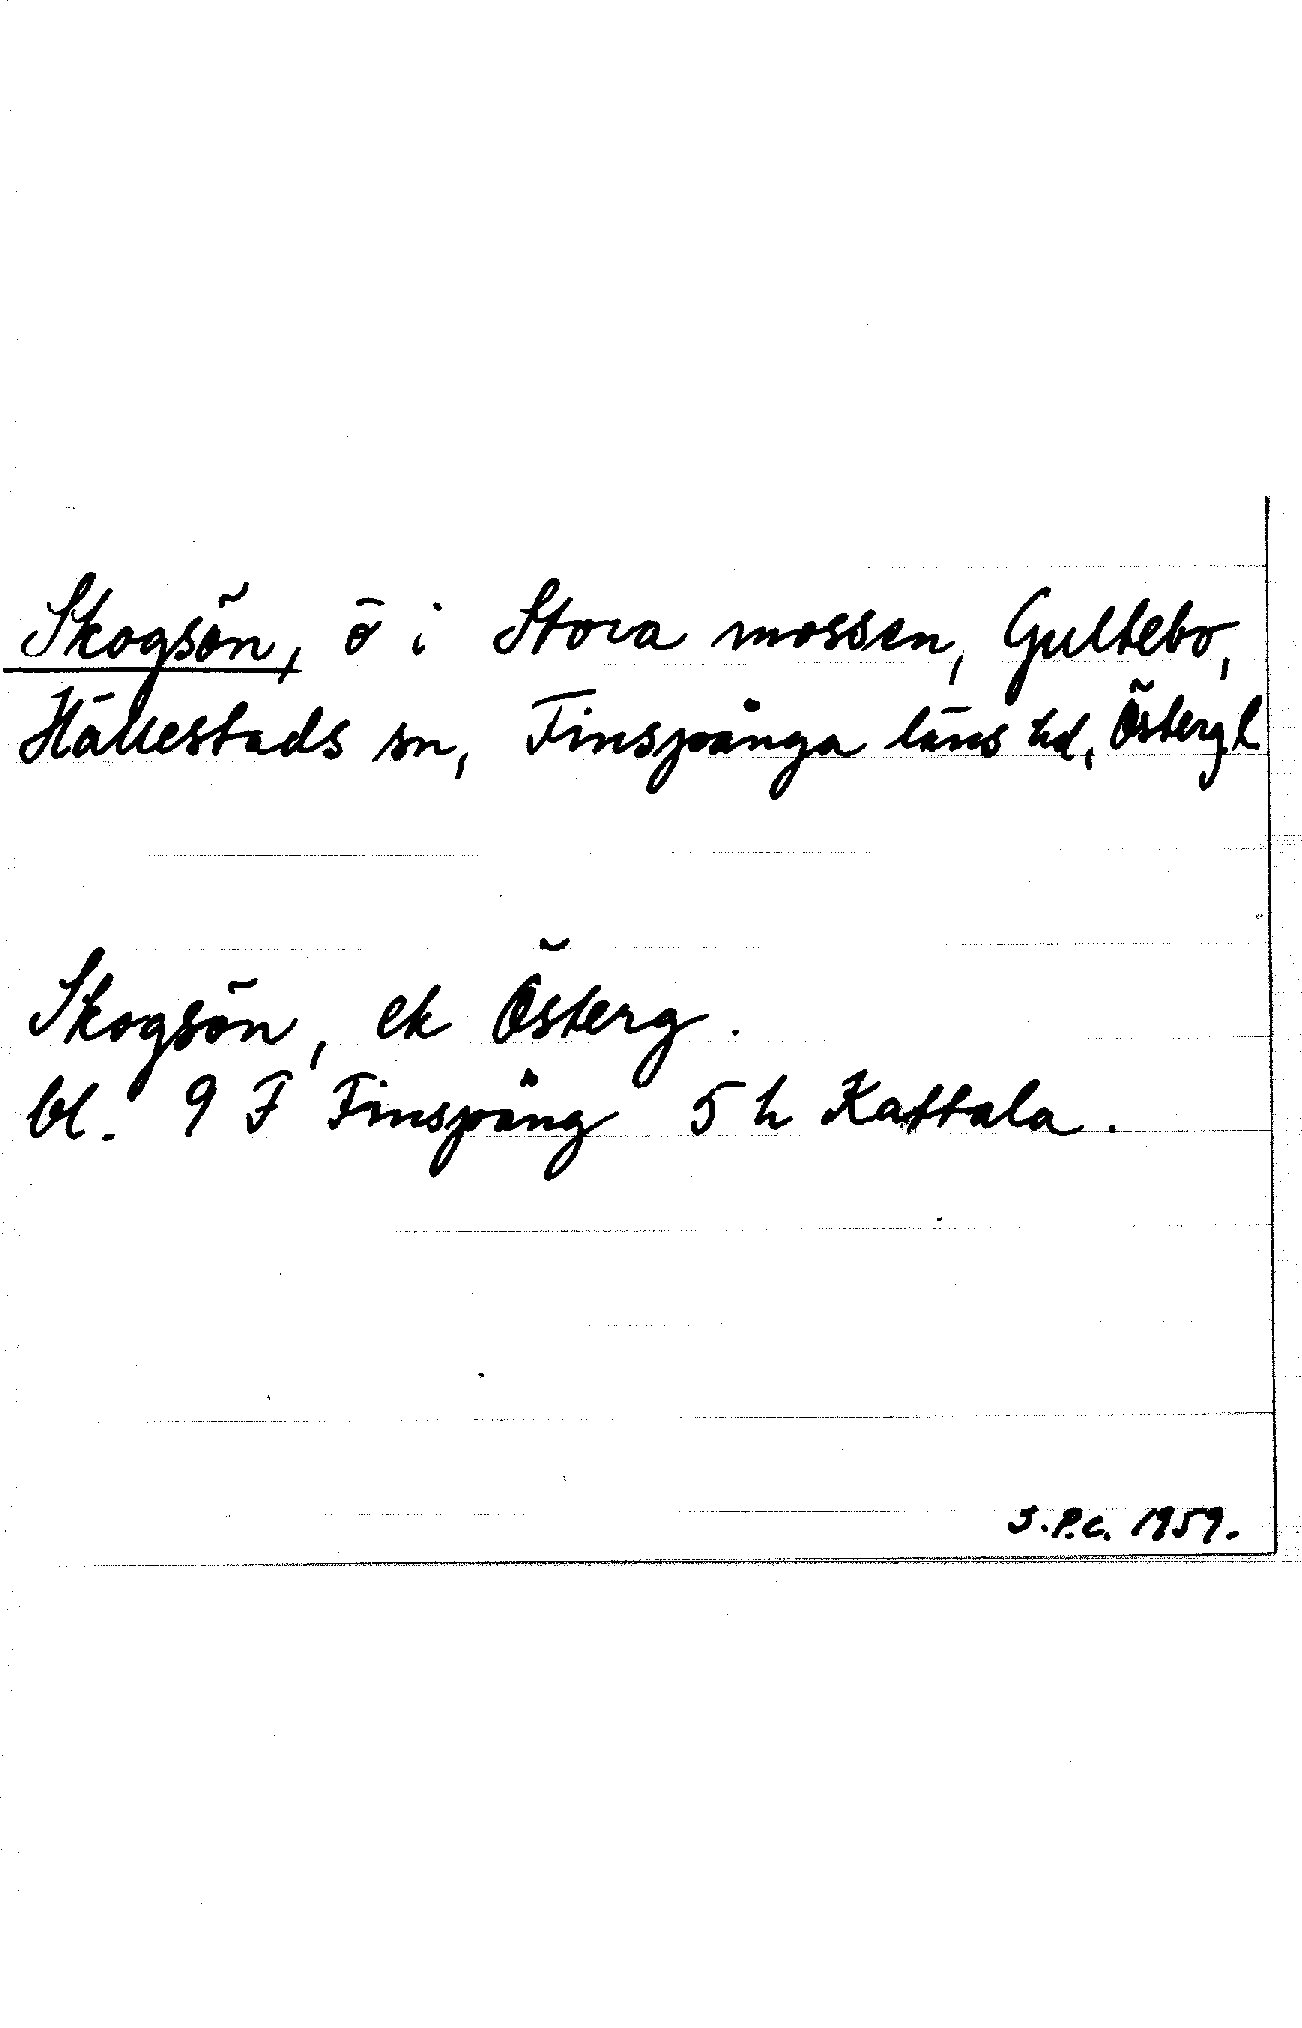 Skogsön, ö i Stora mossen, Gultebo,
Hällestads sn, Finspånga läns hd, Östergl
Skogsön, ek Österg.
bl. 9 F Finspång 5 h Kattala.
S.P.C. 1959.